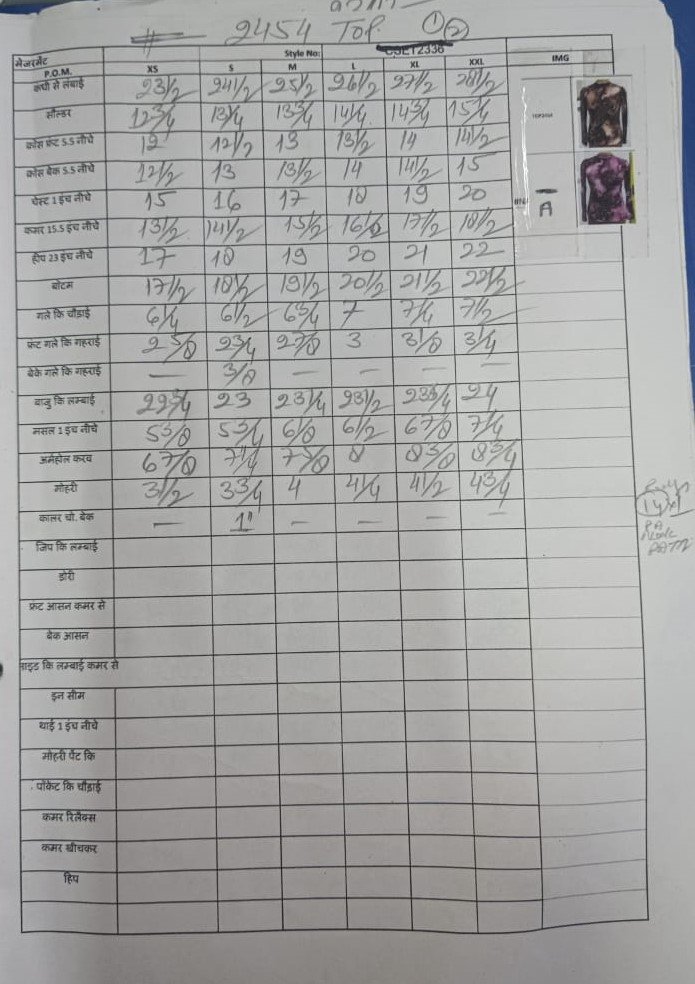 # 2454 TOP ① ②
मेजरमेंट Style No: CSET2338
P.O.M. XS S M L XL XXL IMG
कंधे से लंबाई 23 1/2 24 1/2 25 1/2 26 1/2 27 1/2 28 1/2
सोल्डर 12 3/4 13 1/4 13 3/4 14 1/4 14 3/4 15 1/4
क्रोस फ्रंट 5.5 नीचे 12 12 1/2 13 13 1/2 14 14 1/2
क्रोस बेक 5.5 नीचे 12 1/2 13 13 1/2 14 14 1/2 15
चेस्ट 1 इंच नीचे 15 16 17 18 19 20
A
कमर 15.5 इंच नीचे 13 1/2 14 1/2 15 1/2 16 1/2 17 1/2 18 1/2
हीप 23 इंच नीचे 17 18 19 20 21 22
बोटम 17 1/2 18 1/2 19 1/2 20 1/2 21 1/2 22 1/2
गले कि चौड़ाई 6 1/4 6 1/2 6 3/4 7 7 1/4 7 1/2
फ्रंट गले कि गहराई 2 5/8 2 3/4 2 7/8 3 3 1/8 3 1/4
बेके गले कि गहराई — 3/8 — — — —
बाजु कि लम्बाई 22 3/4 23 23 1/4 23 1/2 23 3/4 24
मसल 1 इंच नीचे 5 3/8 5 3/4 6 1/8 6 1/2 6 7/8 7 1/4
अर्महोल करव 6 7/8 7 1/4 7 5/8 8 8 3/8 8 3/4
मोहरी 3 1/2 3 3/4 4 4 1/4 4 1/2 4 3/4
कालर चो. बेक — 1" — — — —
जिप कि लम्बाई
डोरी
फ्रंट आसन कमर से
बेक आसन
साइड कि लम्बाई कमर से
इन सीम
थाई 1 इंच नीचे
मोहरी पेंट कि
पॉकेट कि चौड़ाई
कमर रिलैक्स
कमर खीचकर
हिप